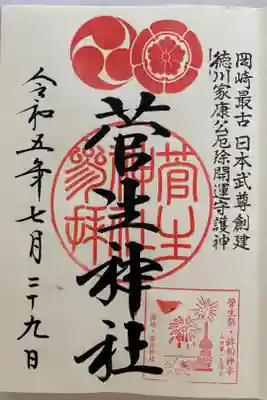 岡崎最古 日本武尊創建
徳川家康公厄除開運守護神
菅生神社
令和五年七月二十九日
菅生
神社
參拜
菅生祭・鉾船神事
岡崎・菅生神社